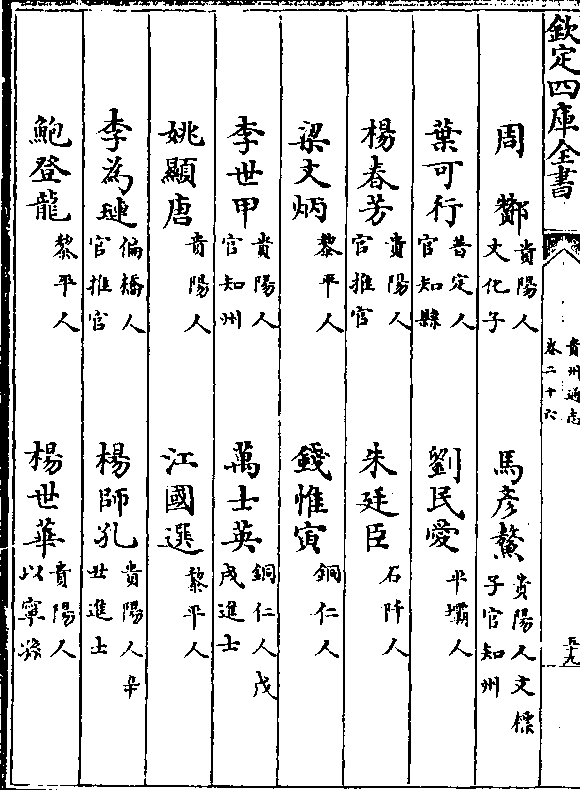 欽定四庫全書
貴州通志
卷二十六
五十九
周酇 貴陽人文化子
馬彥鰲 貴陽人文標子官知州
葉可行 普定人官知縣
劉民愛 平壩人
楊春芳 貴陽人官推官
朱廷臣 石阡人
梁文炳 黎平人
錢惟寅 銅仁人
李世甲 貴陽人官知州
萬士英 銅仁人戊戌進士
姚顯唐 貴陽人
江國選 黎平人
李為璉 偏橋人官推官
楊師孔 貴陽人辛丑進士
鮑登龍 黎平人
楊世華 貴陽人以寧